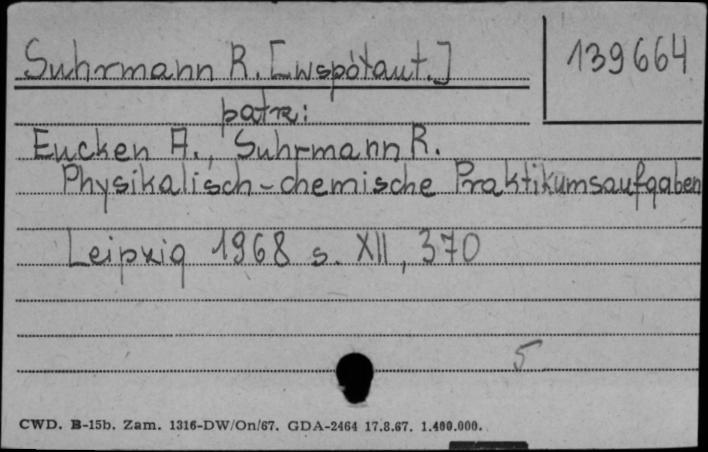 Suhrmann R. [współaut.]
139664
patrz:
Eucken A., Suhrmann R.
Physikalisch-chemische Praktikumsaufgaben
Leipzig 1968 s. XII, 370
5
CWD. B-15b. Zam. 1316-DW/On/67. GDA-2464 17.8.67. 1.400.000.